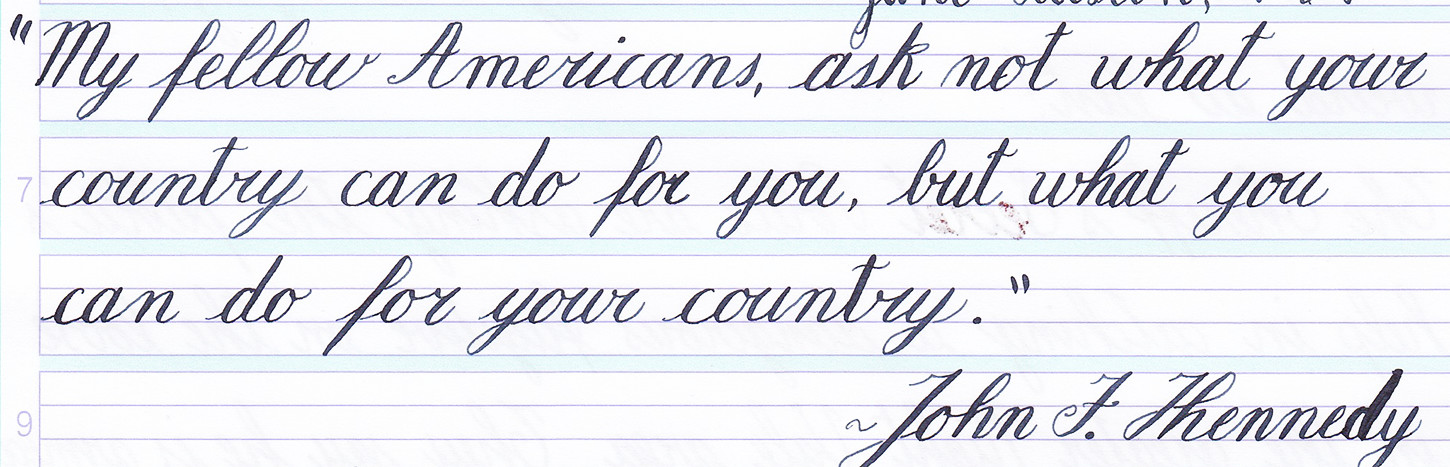 "My fellow Americans, ask not what your
7 country can do for you, but what you
can do for your country."
9 ~John F. Kennedy